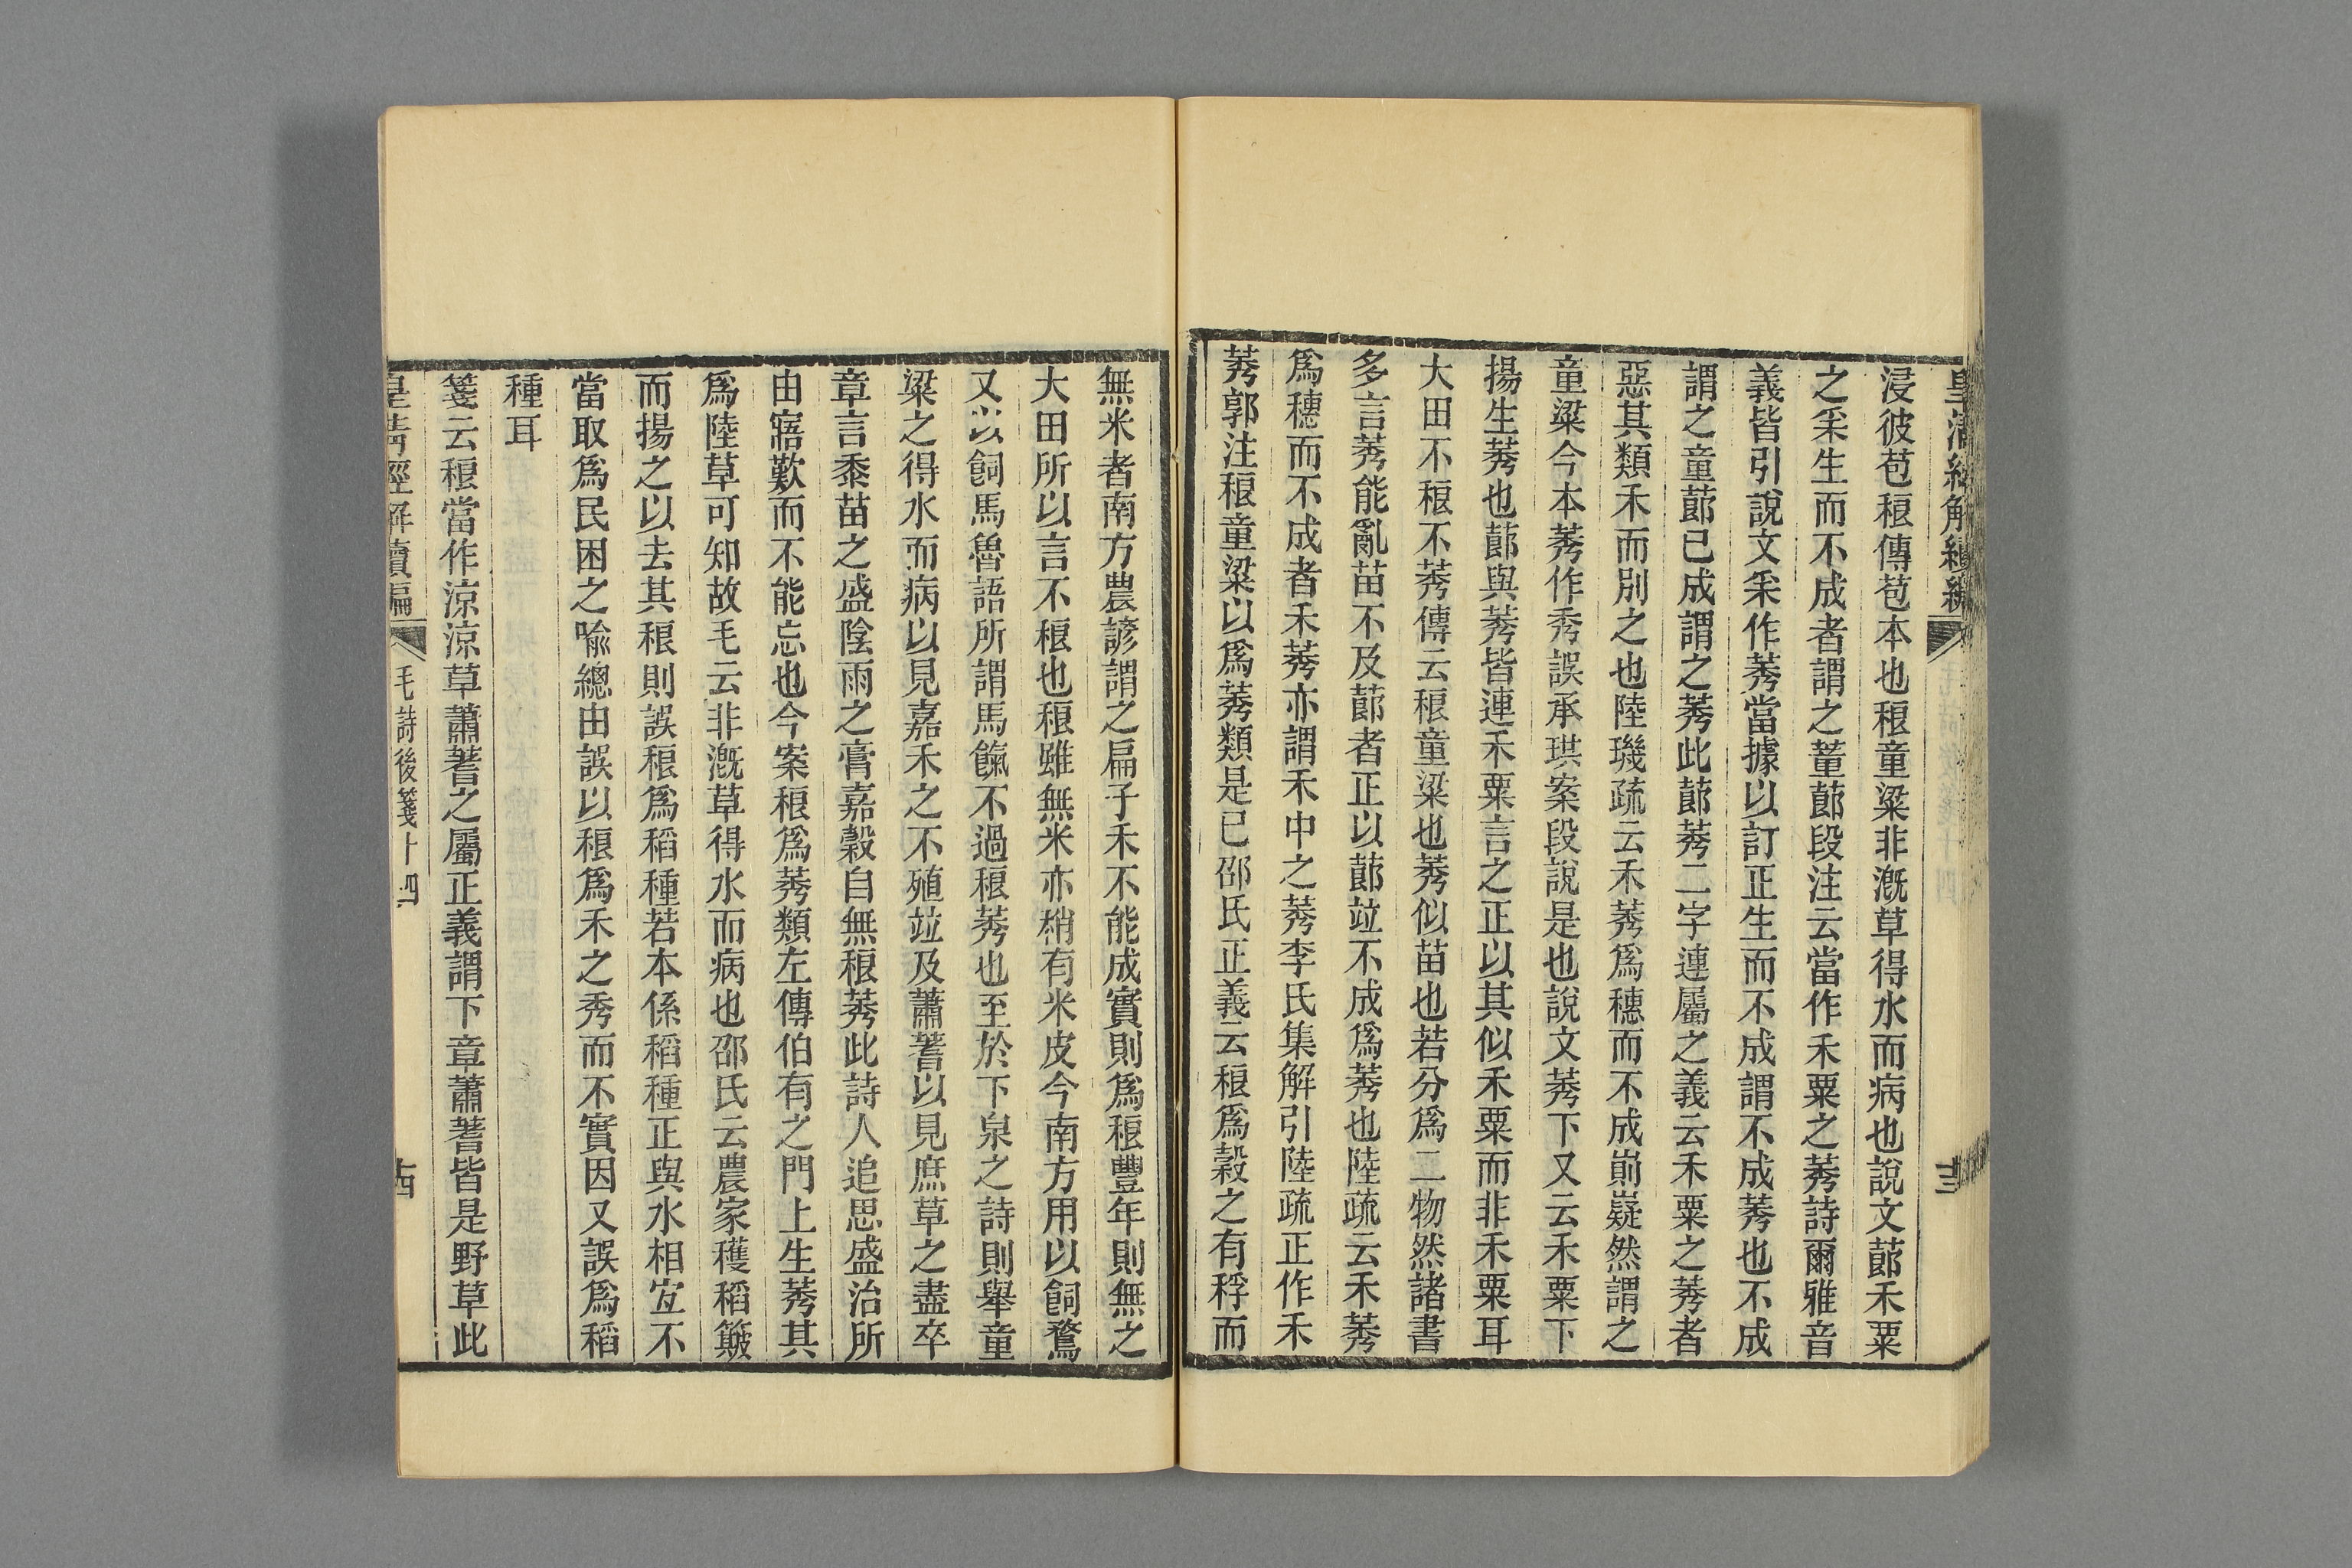 皇清經解續編
十三
浸彼苞稂傳苞本也稂童粱非溉草得水而病也說文蓈禾粟
之采生而不成者謂之蕫蓈段注云當作禾粟之莠詩爾雅音
義皆引說文采作莠當據以訂正生而不成謂不成莠也不成
謂之童蓈已成謂之莠此蓈莠二字連屬之義云禾粟之莠者
惡其類禾而別之也陸璣疏云禾莠爲穗而不成崱嶷然謂之
童粱今本莠作秀誤承珙案段說是也說文莠下又云禾粟下
揚生莠也蓈與莠皆連禾粟言之正以其似禾粟而非禾粟耳
大田不稂不莠傳云稂童粱也莠似苗也若分爲二物然諸書
多言莠能亂苗不及蓈者正以蓈竝不成爲莠也陸疏云禾莠
爲穗而不成者禾莠亦謂禾中之莠李氏集解引陸疏正作禾
莠郭注稂童粱以爲莠類是已邵氏正義云稂爲穀之有稃而
無米者南方農諺謂之扁子禾不能成實則爲稂豐年則無之
大田所以言不稂也稂雖無米亦稍有米皮今南方用以飼鶩
又以飼馬魯語所謂馬餼不過稂莠也至於下泉之詩則舉童
粱之得水而病以見嘉禾之不殖竝及蕭蓍以見庶草之盡卒
章言黍苗之盛陰雨之膏嘉穀自無稂莠此詩人追思盛治所
由寤歎而不能忘也今案稂爲莠類左傳伯有之門上生莠其
爲陸草可知故毛云非溉草得水而病也邵氏云農家穫稻簸
而揚之以去其稂則誤稂爲稻種若本係稻種正與水相宐不
當取爲民困之喻總由誤以稂爲禾之秀而不實因又誤爲稻
種耳
箋云稂當作涼涼草蕭蓍之屬正義謂下章蕭蓍皆是野草此
皇清經解續編
毛詩後箋十四
十四